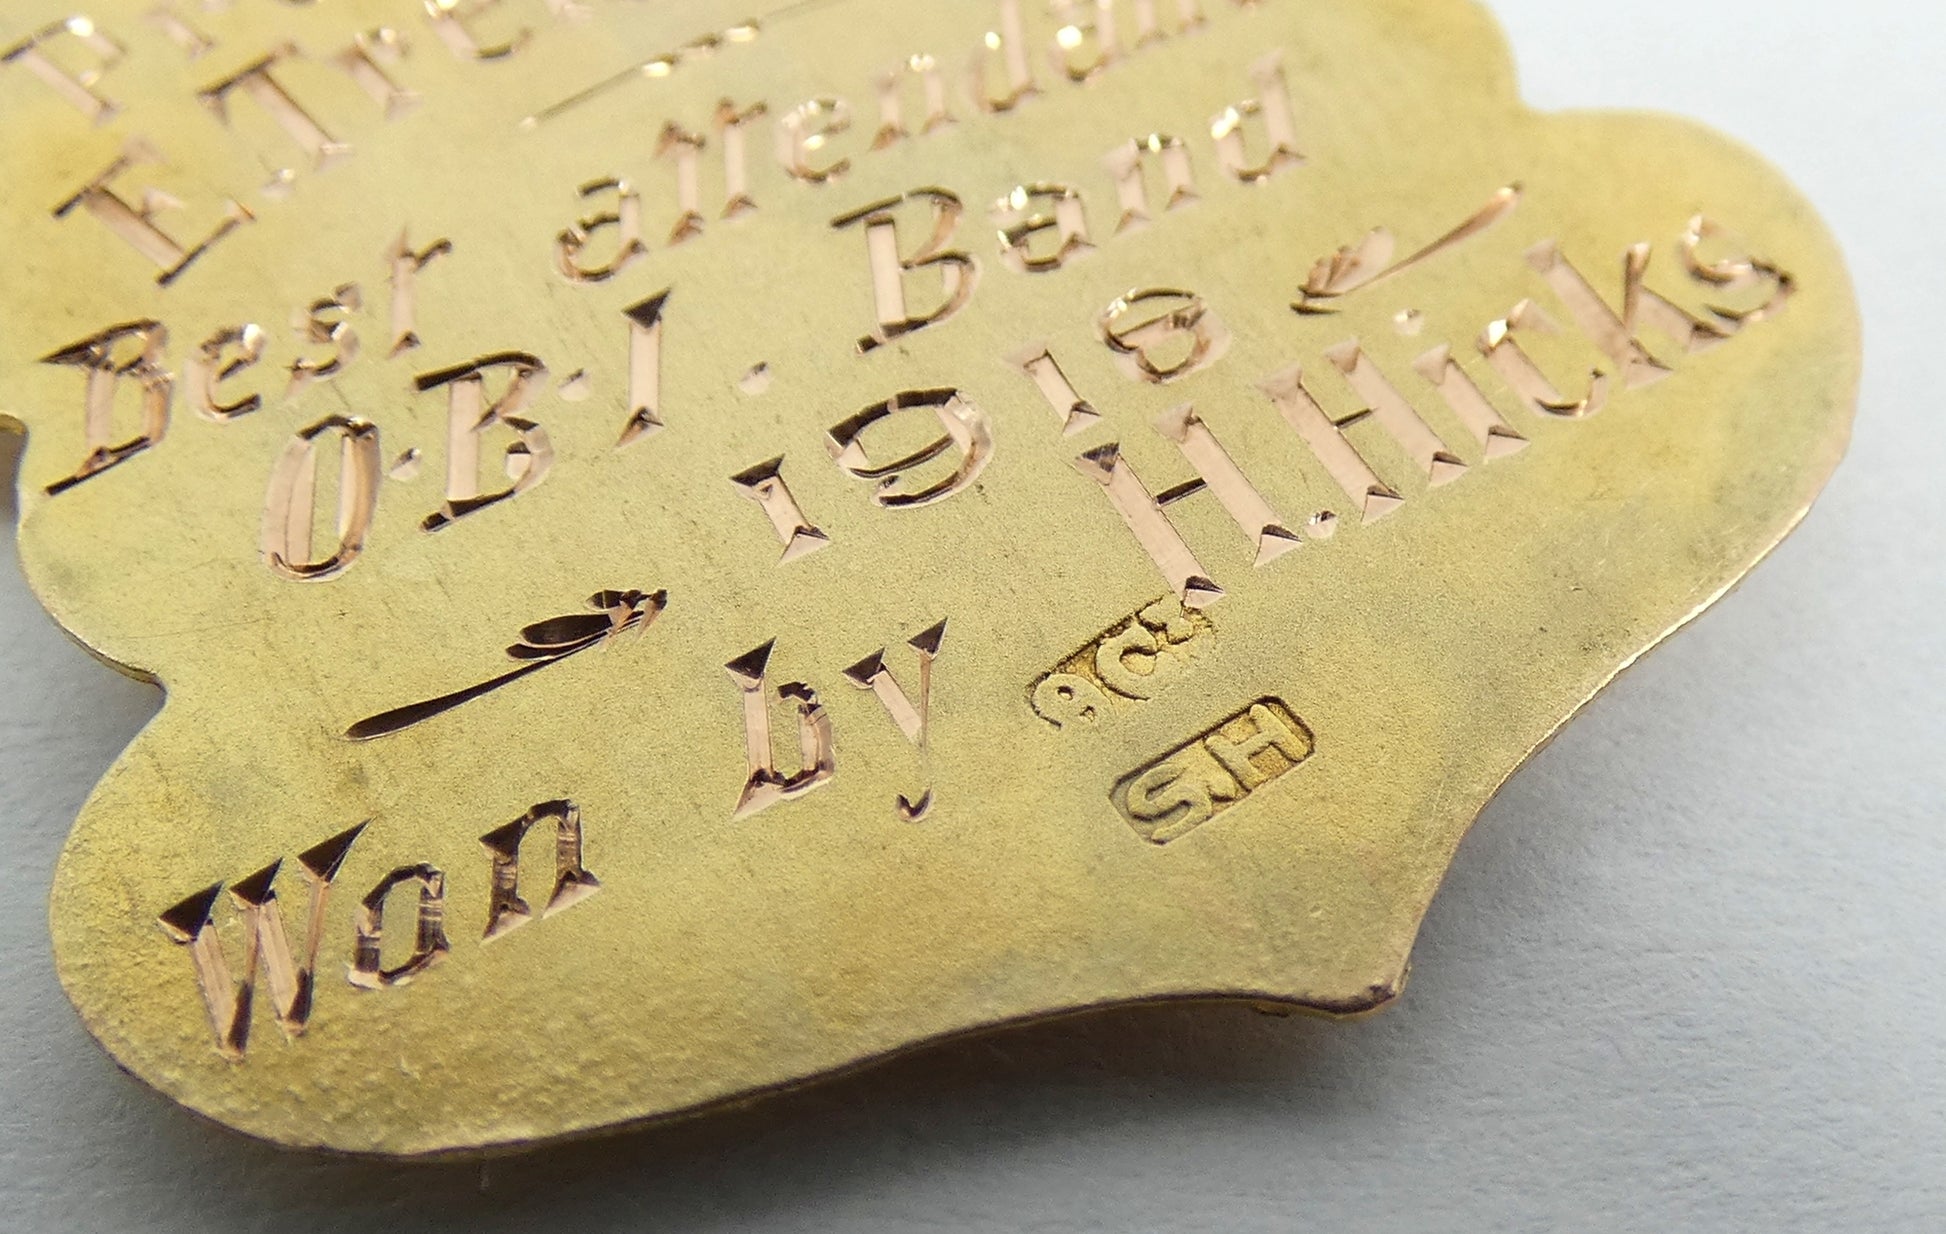 E.Tre
Best attendan
O.B.I. Band
1918
Won by H.Hicks
9CT
S.H